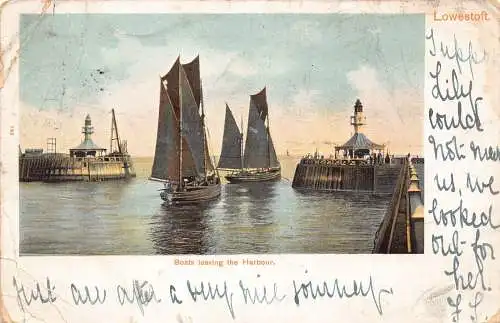 Lowestoft.
Suppo
Lily
could
not meet
us, we
looked
out for
her.
Boats leaving the Harbour.
Just are after a very nice journey.